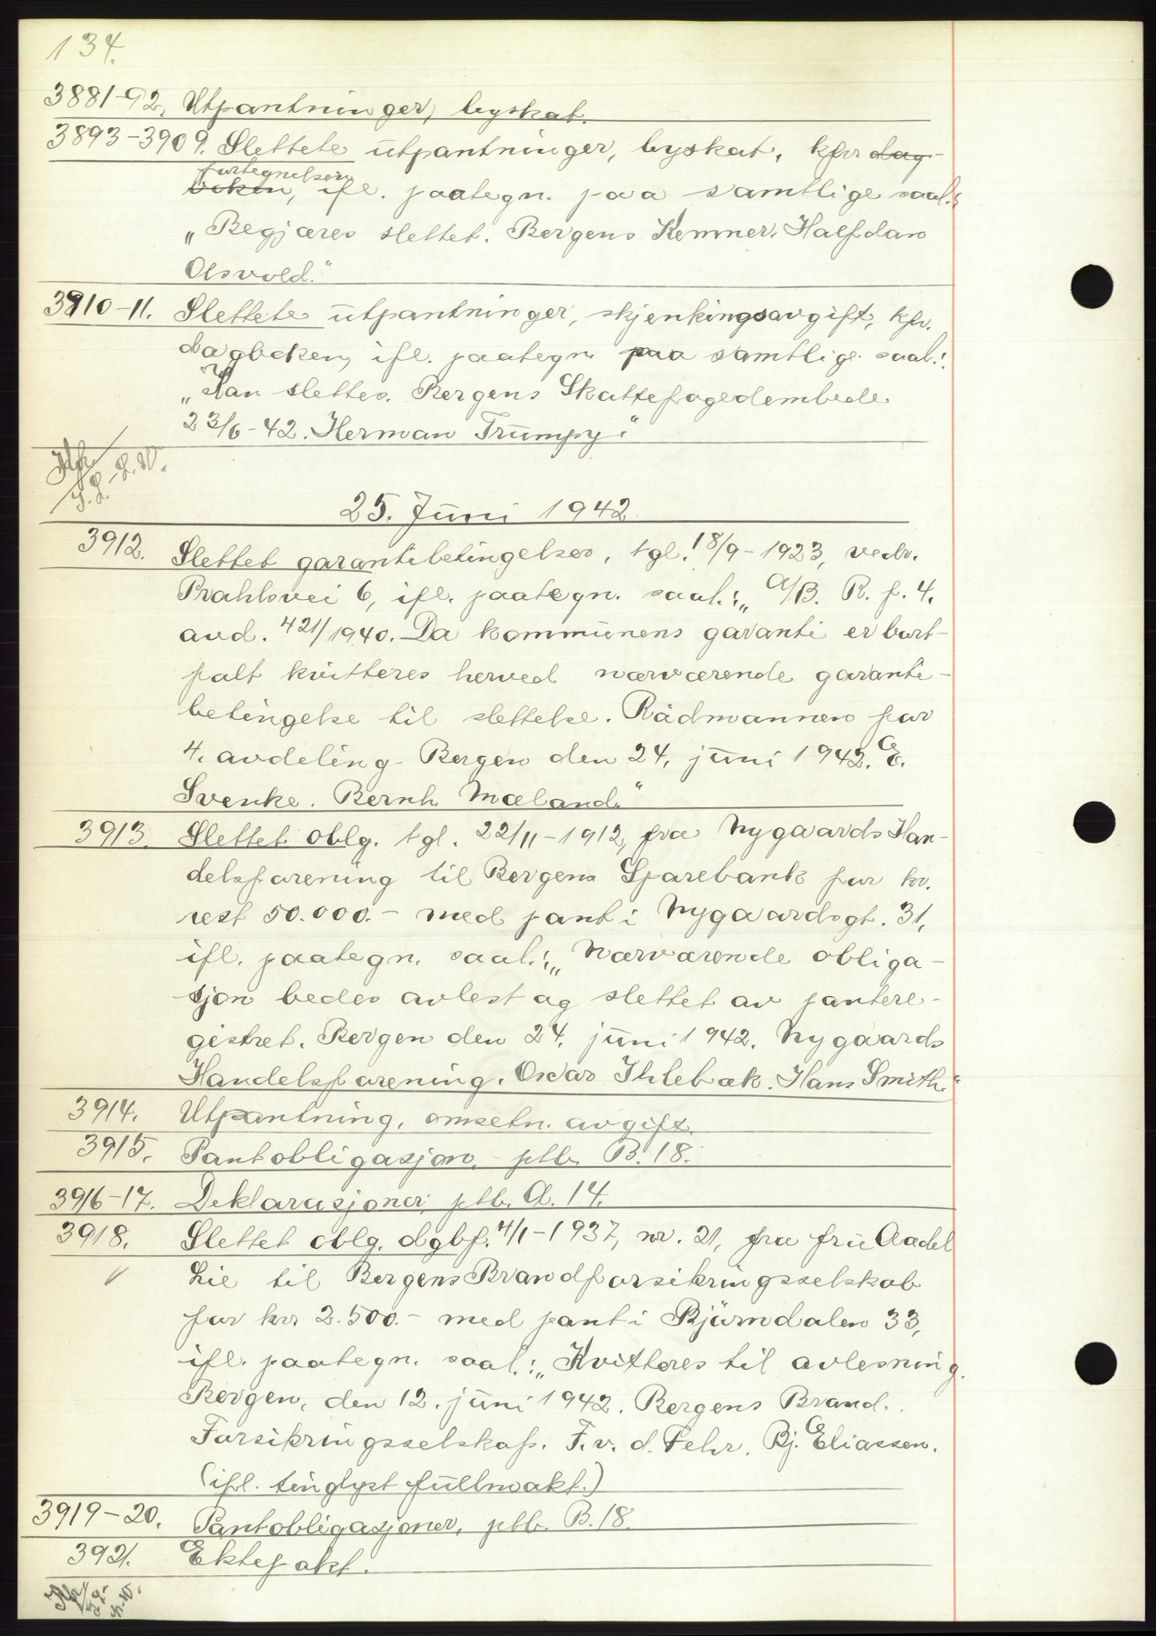 134.
3881-92. Utpantninger, byskat.
3893-3909. Slettete utpantninger, byskat, kfr dag-
fortegnelsen
boken, ifl. paategn. paa samtlige saal.:
„Begjæres slettet. Bergens Kemner. Halfdan
Olsvold."
3910-11. Slettete utpantninger, skjenkingsavgift, kfr.
dagboken, ifl. paategn paa samtlige saal.:
„Kan slettes. Bergens Skattefogedembede
23/6-42. Herman Trumpy."
Kfr
25. Juni 1942
3912. Slettet garantibetingelse, tgl. 18/9-1923, vedr.
Prahlsvei 6, ifl. paategn. saal.: „A/B. R. f. 4.
avd. 421/1940. Da kommunens garanti er bort-
falt kvitteres herved nærværende garanti-
betingelse til slettelse. Rådmannen for
4. avdeling Bergen den 24. juni 1942. E.
Svenke. Bernh Mæland."
3913. Slettet oblg. tgl. 22/11-1912, fra Nygaards Han-
delsforening til Bergens Sparebank for kr.
rest 50.000.- med pant i Nygaardsgt. 31,
ifl. paategn. saal.: „Nærværende obliga-
sjon bedes avlest og slettet av pantere-
gistret. Bergen den 24. juni 1942. Nygaards
Handelsforening. Oscar Ihlebæk. Hans Smith."
3914. Utpantning, omsetn. avgift.
3915. Pantobligasjon, ptb. B. 18.
3916-17. Deklarasjoner, ptb. A. 14.
3918. Slettet oblg. dgbf. 4/1-1937, nr. 21, fra fru Aadel
Lie til Bergens Brandforsikringsselskab
for kr 2.500.- med pant i Bjørndalen 33,
ifl. paategn. saal.: „Kvitteres til avlesning.
Bergen, den 12. juni 1942. Bergens Brand.
Forsikringsselskap. F. v. d. Fehr. Bj. Eliassen.
(ifl. tinglyst fullmakt.)
3919-20. Pantobligasjoner, ptb. B. 18.
3921. Ektepakt.
Kfr